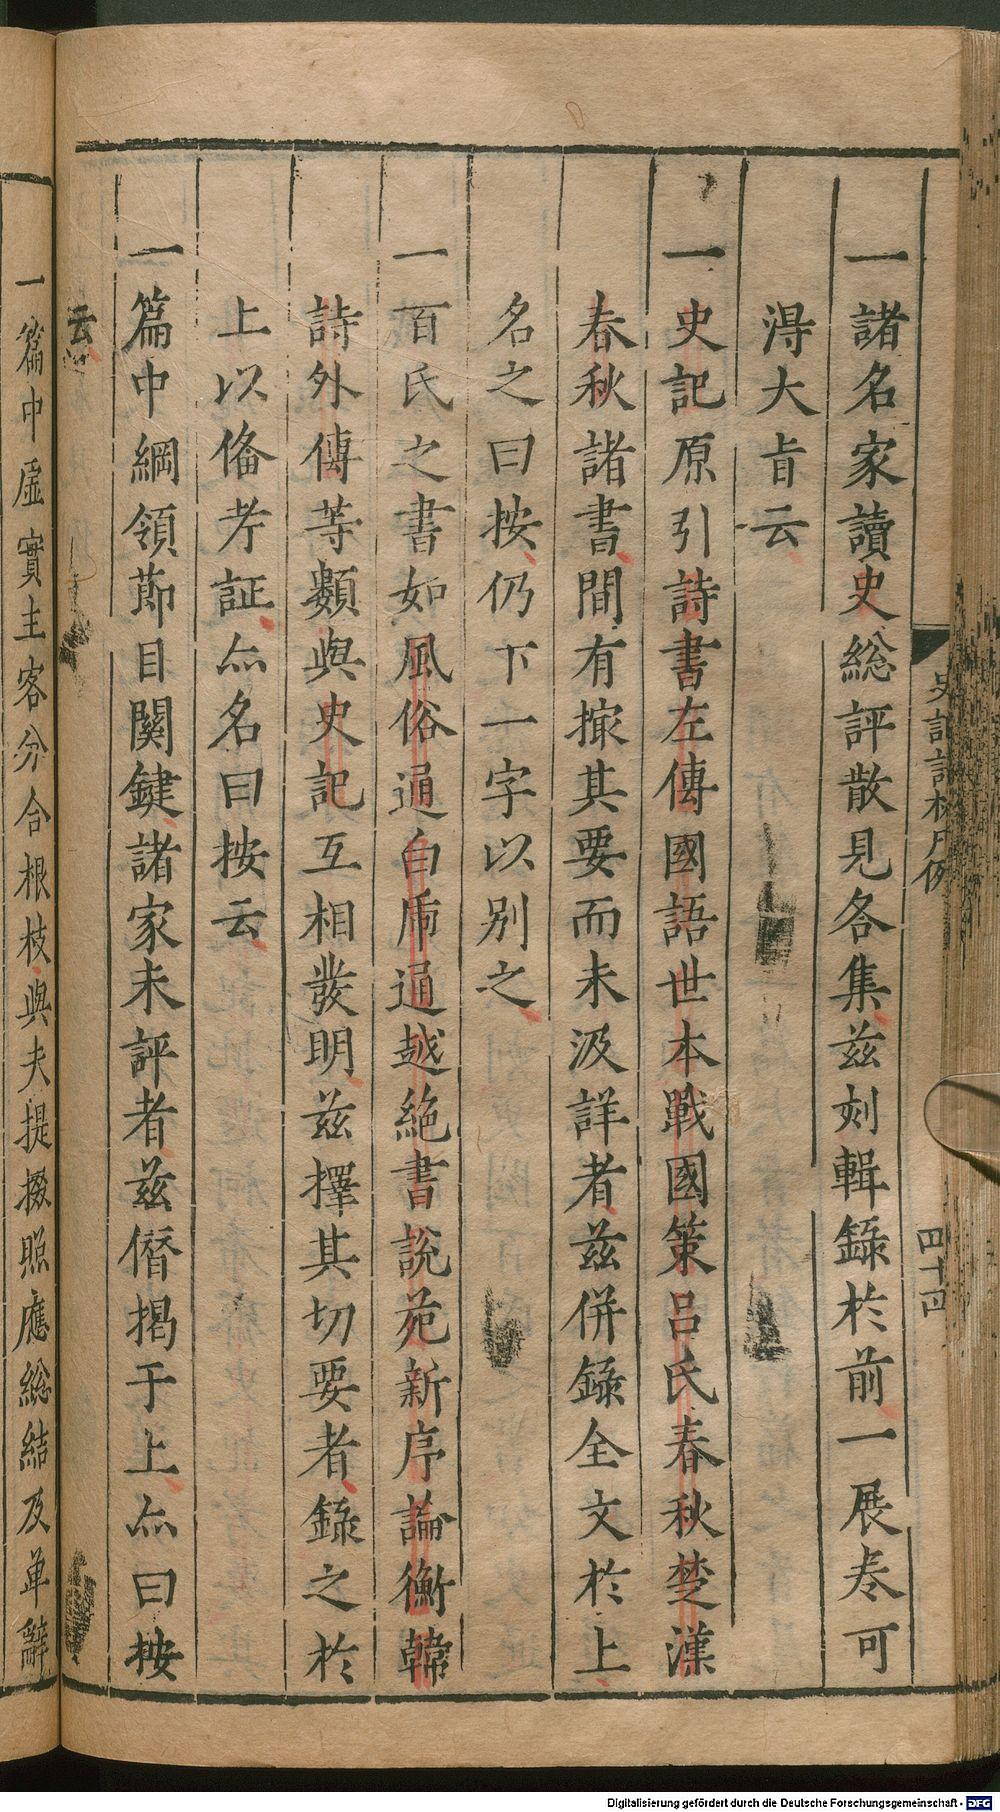 史記評林凡例
四十四
一諸名家讀史総評散見各集茲刻輯錄於前一展卷可
淂大旨云
一史記原引詩書左傳國語世本戰國策呂氏春秋楚漢
春秋諸書間有撮其要而未汲詳者茲併錄全文於上
名之曰按仍下一字以别之
一百氏之書如風俗通白虎通越絶書說苑新序論衡韓
詩外傳等類與史記互相發明茲擇其切要者錄之於
上以俻考証亦名曰按云
一篇中綱領節目關鍵諸家未評者茲僭揭于上亦曰按
云
一篇中虛實主客分合根枝與夫提掇照應総結及单辭
Digitalisierung gefördert durch die Deutsche Forschungsgemeinschaft - DFG